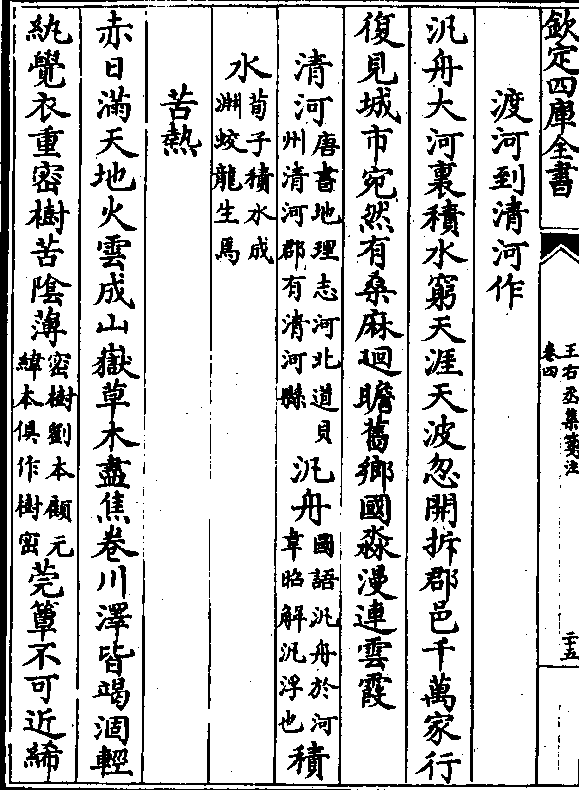 欽定四庫全書
王右丞集箋注
卷四
二十五
渡河到清河作
汎舟大河裏積水窮天涯天波忽開拆郡邑千萬家行
復見城市宛然有桑麻廻瞻舊鄉國淼漫連雲霞
清河唐書地理志河北道貝州清河郡有清河縣汎舟國語汎舟於河韋昭解汎浮也積
水荀子積水成淵蛟龍生焉
苦熱
赤日滿天地火雲成山嶽草木盡焦卷川澤皆竭涸輕
紈覺衣重密樹苦陰薄密樹劉本顧元緯本俱作樹密莞簟不可近絺